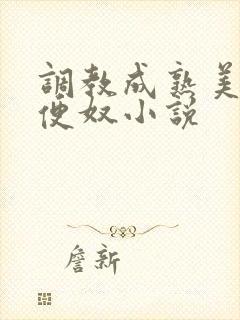 調教成熟美
便奴小説
詹新